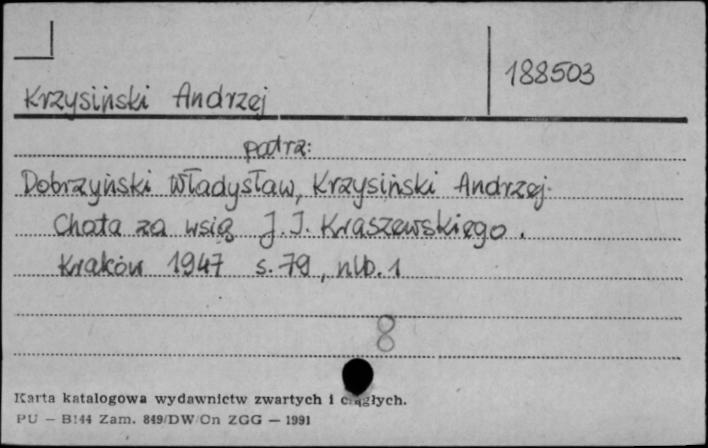 188503
Krzysiński Andrzej
patrz:
Dobrzyński Władysław, Krzysiński Andrzej.
Chata za wsią J.I. Kraszewskiego.
Kraków 1947 s. 79, nlb. 1
8
Karta katalogowa wydawnictw zwartych i ciągłych.
PU — B144 Zam. 849/DW/On ZGG — 1991